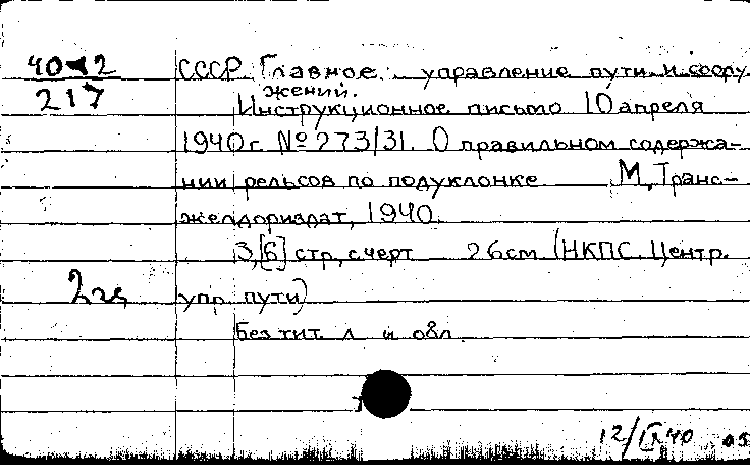 40-2
217
СССР. Главное управление пути и соору
жений.
Инструкционное письмо 10 апреля
1940 г. № 273/31. О правильном содержа-
нии рельсов по подуклонке М, Транс-
желдориздат, 1940.
3,[6] стр, с черт 26 см (НКПС. Центр.
упр. пути)
Без тит. л и обл.
12/IX 40